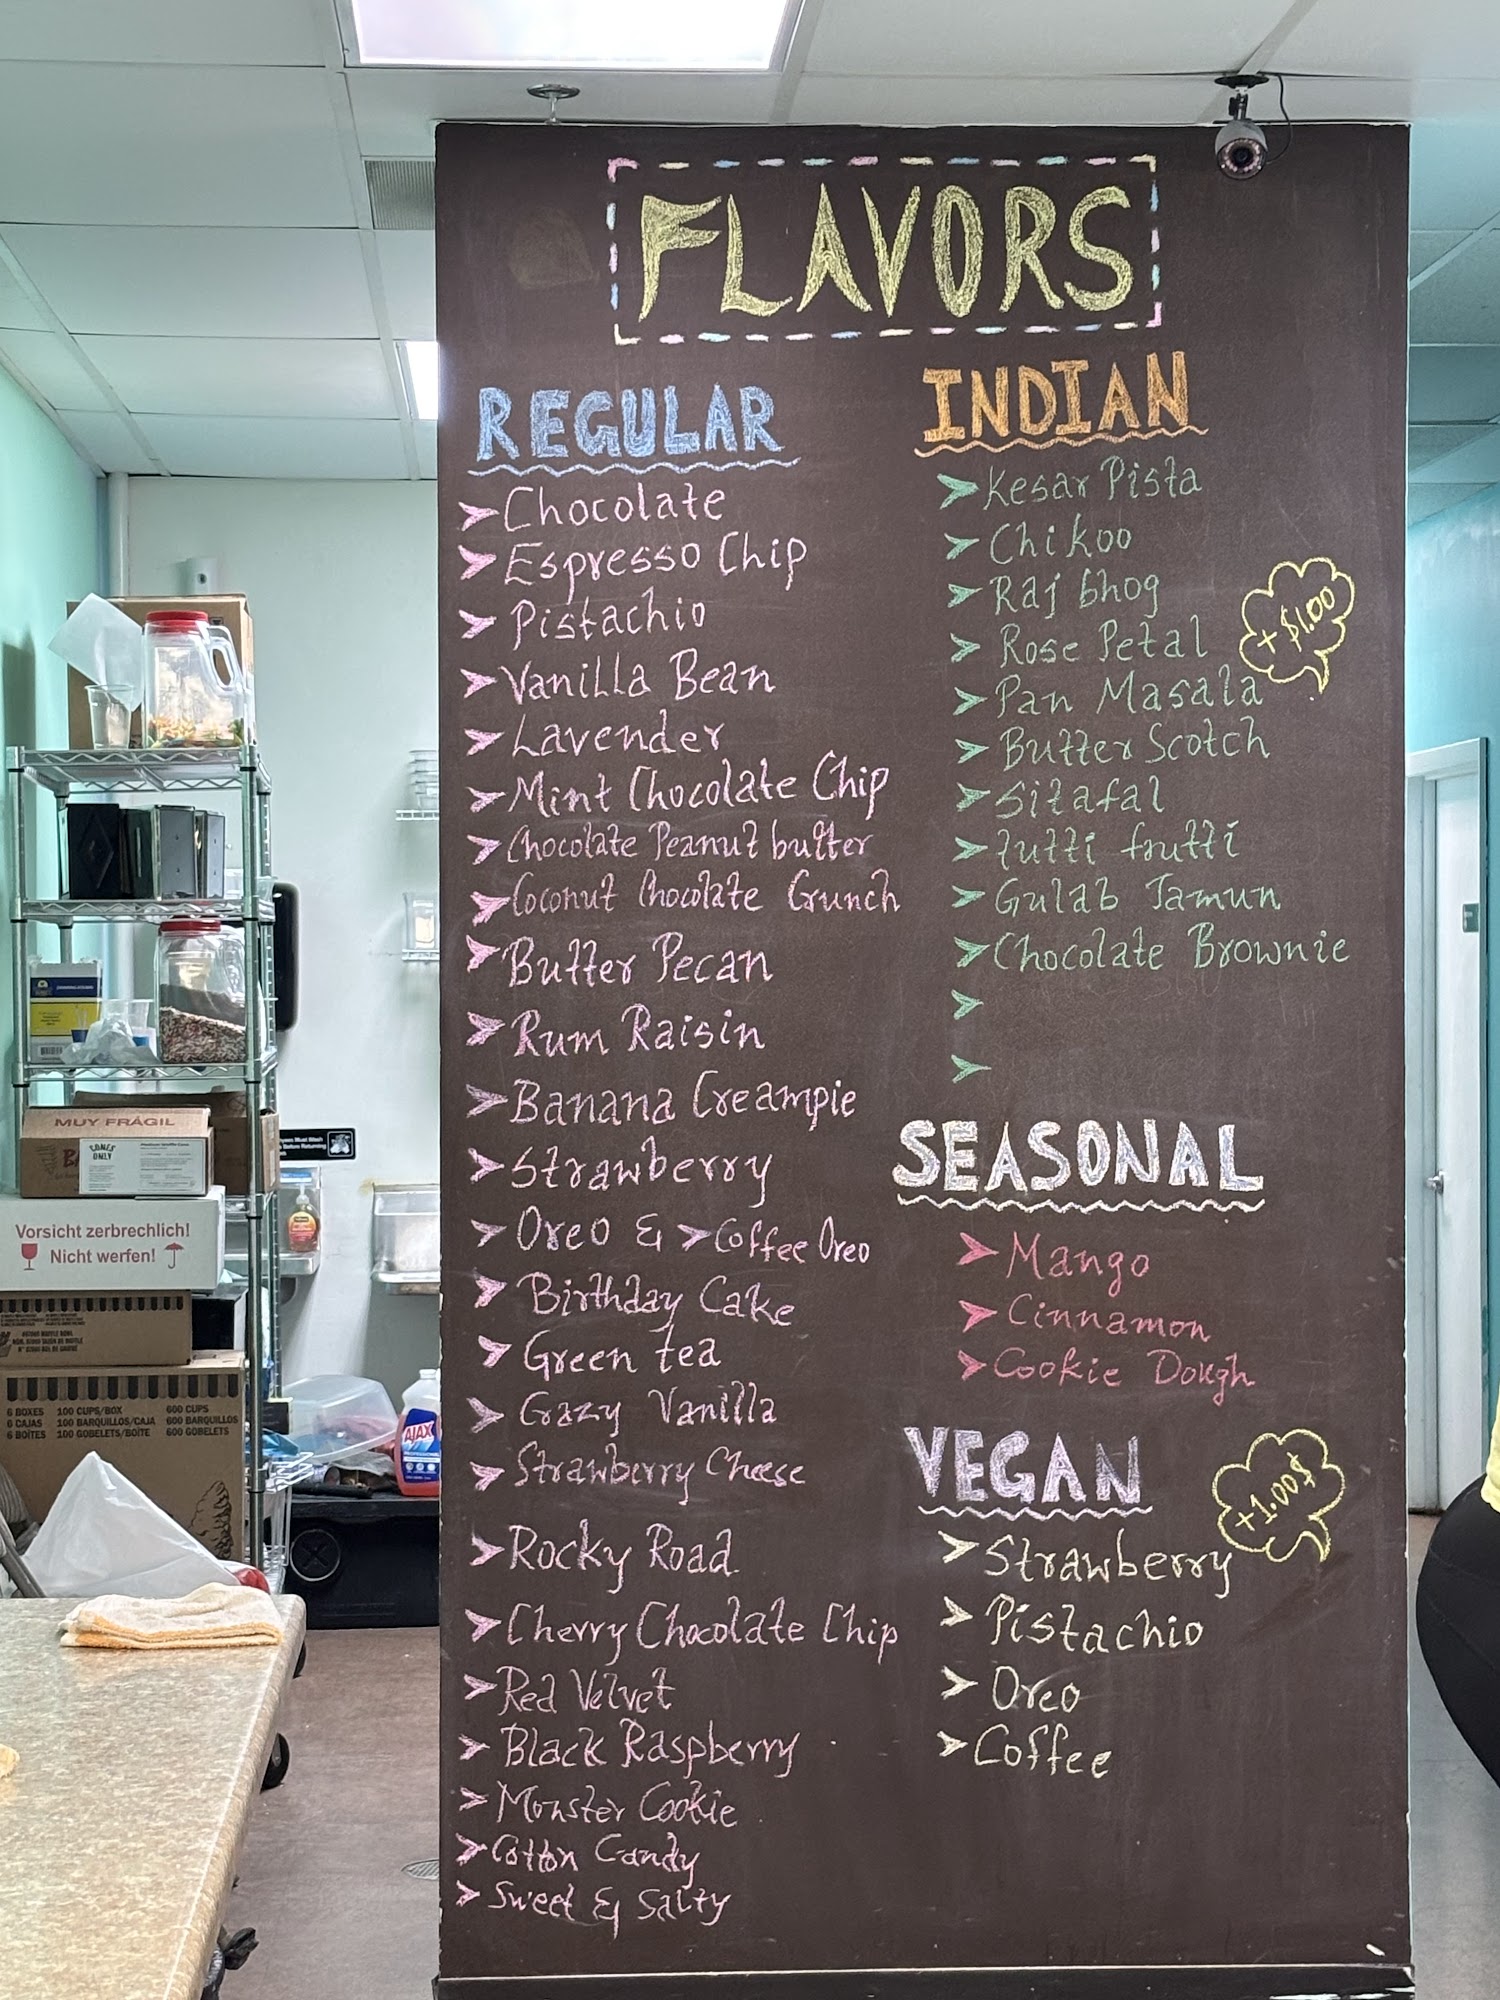 FLAVORS
REGULAR
Chocolate
Espresso Chip
Pistachio
Vanilla Bean
Lavender
Mint Chocolate Chip
Chocolate Peanut butter
Coconut Chocolate Crunch
Butter Pecan
Rum Raisin
Banana Creampie
Strawberry
Oreo & Coffee Oreo
Birthday Cake
Green tea
Crazy Vanilla
Strawberry Cheese
Rocky Road
Cherry Chocolate Chip
Red Velvet
Black Raspberry
Monster Cookie
Cotton Candy
Sweet & Salty
INDIAN
+ $1.00
Kesar Pista
Chikoo
Raj bhog
Rose Petal
Pan Masala
Butter Scotch
Sitafal
tutti frutti
Gulab Jamun
Chocolate Brownie
SEASONAL
Mango
Cinnamon
Cookie Dough
VEGAN
+1.00$
Strawberry
Pistachio
Oreo
Coffee
MUY FRÁGIL
CONES
ONLY
Vorsicht zerbrechlich!
Nicht werfen!
6 BOXES 100 CUPS/BOX 600 CUPS
6 CAJAS 100 BARQUILLOS/CAJA 600 BARQUILLOS
6 BOÎTES 100 GOBELETS/BOÎTE 600 GOBELETS
AJAX